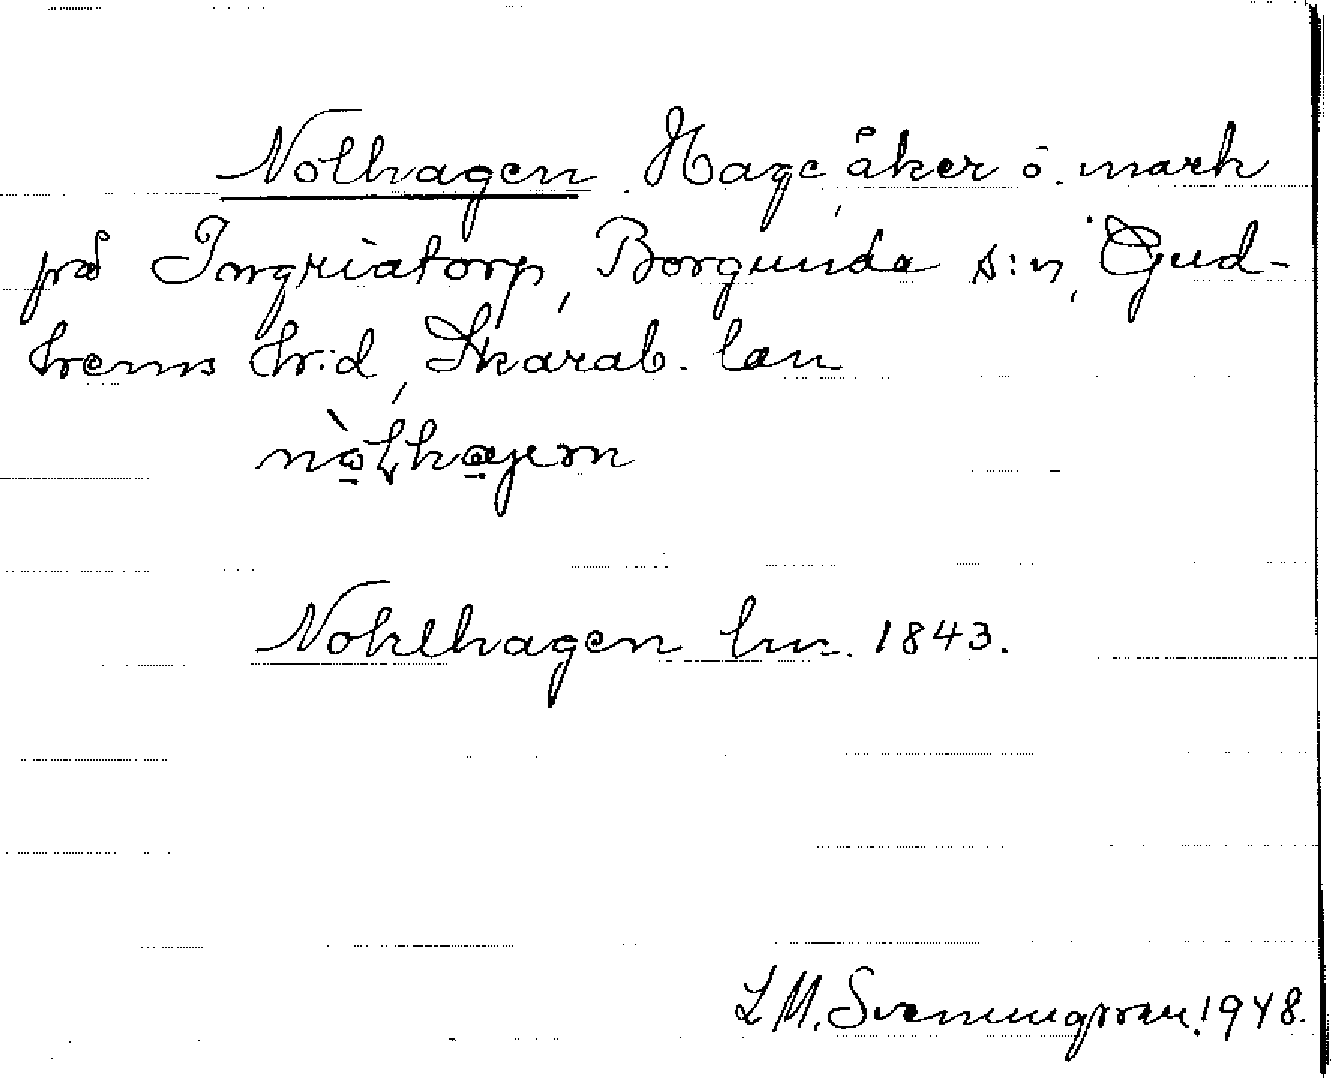 Nolhagen. Hage, åker o. mark
på Ingriatorp, Borgunda s:n, Gud-
hems hr:d, Skarab. län
Nohlhagen lm. 1843.
L M. Svenungsson. 1948.